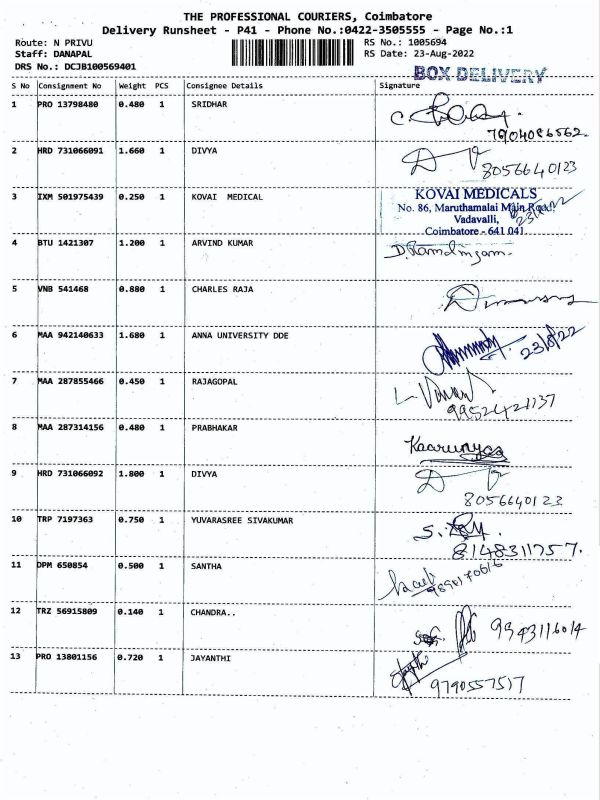 THE PROFESSIONAL COURIERS, Coimbatore
Delivery Runsheet - P41 - Phone No.:0422-3505555 - Page No.:1
Route: N PRIVU RS No.: 1005694
Staff: DANAPAL RS Date: 23-Aug-2022
DRS No.: DCJB100569401
BOX DELIVERY
S No Consignment No Weight PCS Consignee Details Signature
1 PRO 13798480 0.480 1 SRIDHAR
7904086562.
2 HRD 731066091 1.660 1 DIVYA
8056640123
3 IXM 501975439 0.250 1 KOVAI MEDICAL
KOVAI MEDICALS
No. 86, Maruthamalai Main Road,
Vadavalli,
Coimbatore - 641 041.
4 BTU 1421307 1.200 1 ARVIND KUMAR
5 VNB 541468 0.880 1 CHARLES RAJA
6 MAA 942140633 1.680 1 ANNA UNIVERSITY DDE
23/8/22
7 MAA 287855466 0.450 1 RAJAGOPAL
9952421137
8 MAA 287314156 0.480 1 PRABHAKAR
Kaarunyaa
9 HRD 731066092 1.800 1 DIVYA
8056640123
10 TRP 7197363 0.750 1 YUVARASREE SIVAKUMAR
8148311757.
11 DPM 650854 0.500 1 SANTHA
12 TRZ 56915809 0.140 1 CHANDRA..
9943116014
13 PRO 13801156 0.720 1 JAYANTHI
9790557517